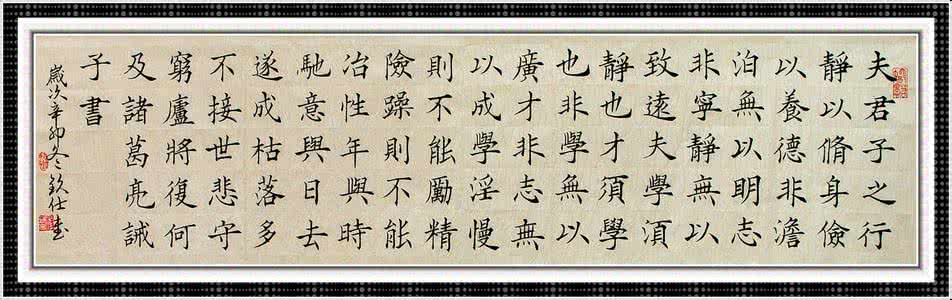 夫君子之行
靜以脩身儉
以養德非澹
泊無以明志
非寧靜無以
致遠夫學湏
靜也才須學
也非學無以
廣才非志無
以成學淫慢
則不能勵精
險躁則不能
冶性年與時
馳意與日去
遂成枯落多
不接世悲守
窮廬將復何
及諸葛亮誡
子書
歲次辛卯冬欽仕書